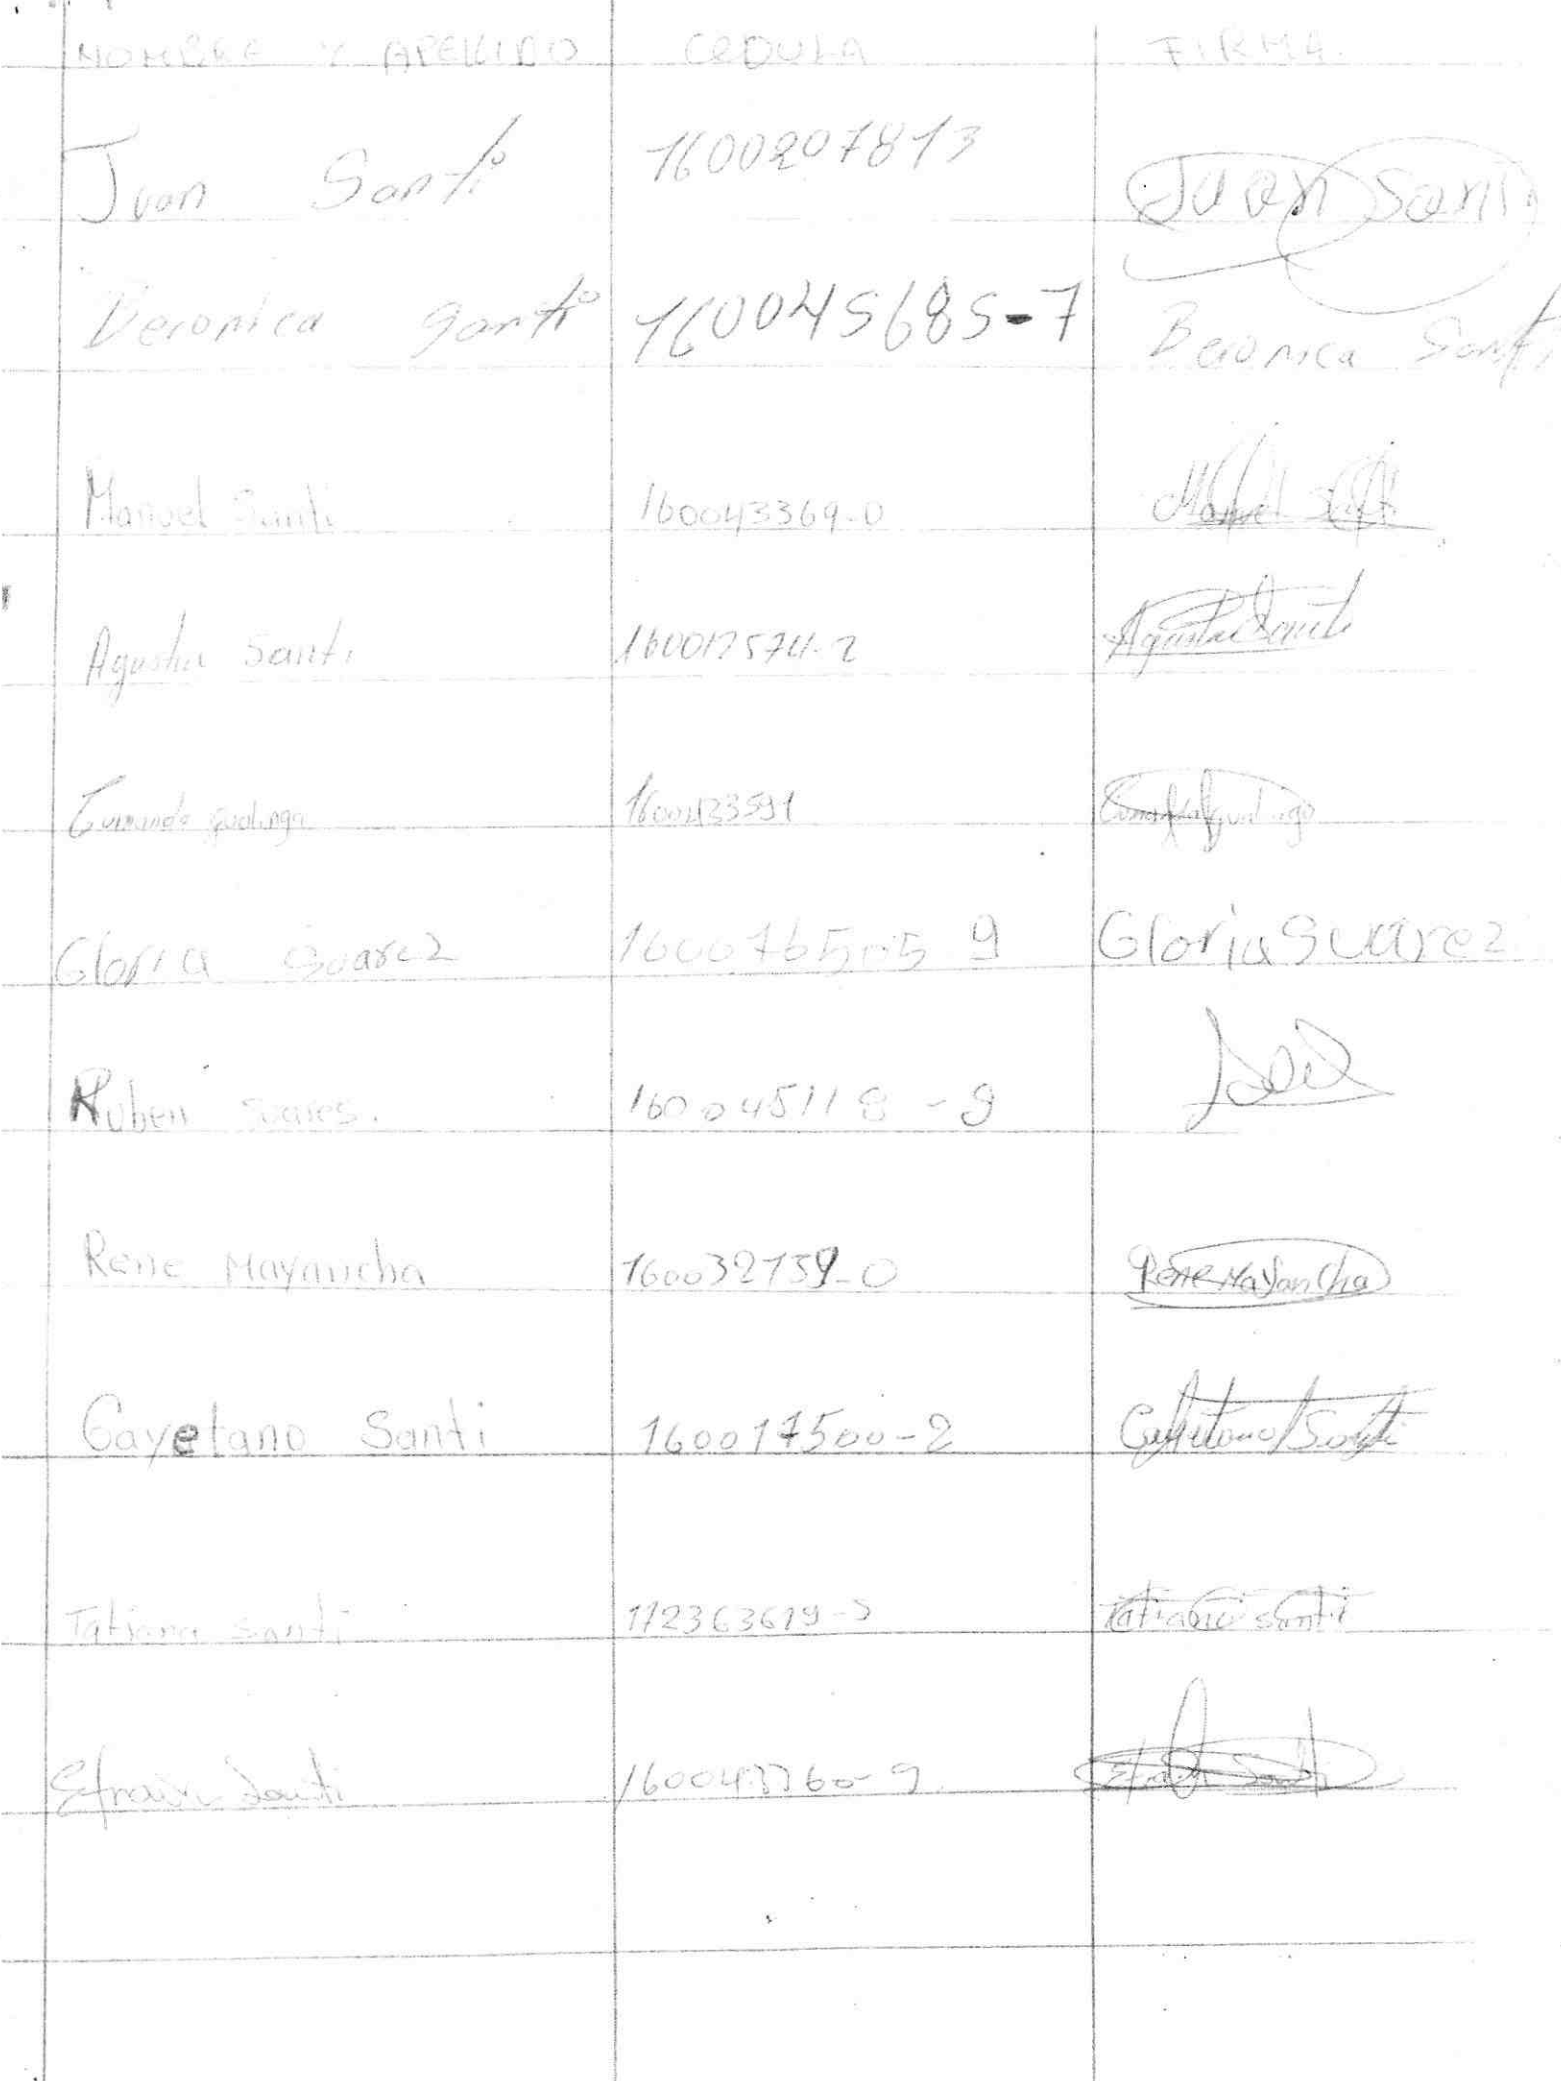 NOMBRE Y APELLIDO CEDULA FIRMA.
Juan Santi 1600207813 Juan Santi
Beronica Santi 160045685-7 Beronica Santi
Manuel Santi 160043369-0 Manuel Santi
Agustin Santi 160017574-2 Agustin Santi
gualinga 1600433591 gualinga
Gloria Suarez 160076505-9 Gloria Suarez
Ruben suares. 160045118-9
Rene Mayancha 160032139-0 Rene Mayancha
Cayetano Santi 160017500-2 Cayetano Santi
Tatiana santi 172363619-5 Tatiana santi
Efrain Santi 160043360-9 Efrain Santi